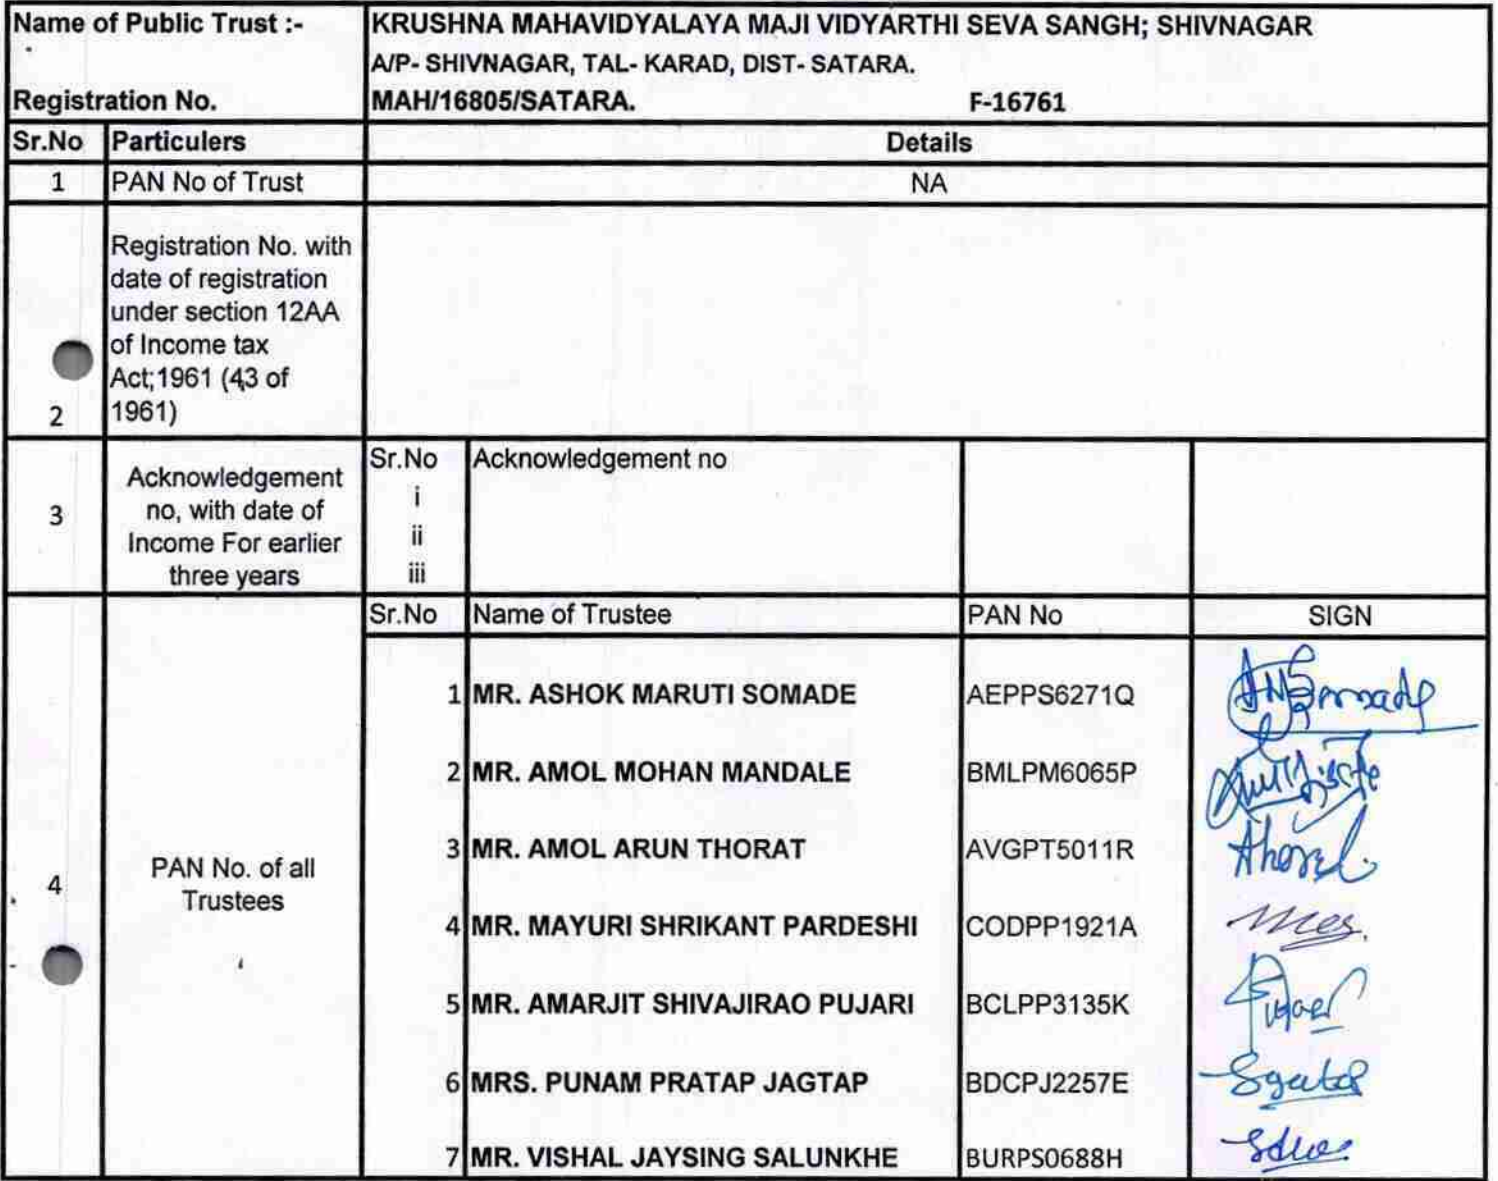 Name of Public Trust :- KRUSHNA MAHAVIDYALAYA MAJI VIDYARTHI SEVA SANGH; SHIVNAGAR
A/P- SHIVNAGAR, TAL- KARAD, DIST- SATARA.
Registration No. MAH/16805/SATARA. F-16761
Sr.No Particulers Details
1 PAN No of Trust NA
Registration No. with
date of registration
under section 12AA
of Income tax
Act;1961 (43 of
2 1961)
3 Acknowledgement
no, with date of
Income For earlier
three years
Sr.No Acknowledgement no
i
ii
iii
4 PAN No. of all
Trustees
Sr.No Name of Trustee PAN No SIGN
1 MR. ASHOK MARUTI SOMADE AEPPS6271Q
2 MR. AMOL MOHAN MANDALE BMLPM6065P
3 MR. AMOL ARUN THORAT AVGPT5011R
4 MR. MAYURI SHRIKANT PARDESHI CODPP1921A
5 MR. AMARJIT SHIVAJIRAO PUJARI BCLPP3135K
6 MRS. PUNAM PRATAP JAGTAP BDCPJ2257E
7 MR. VISHAL JAYSING SALUNKHE BURPS0688H